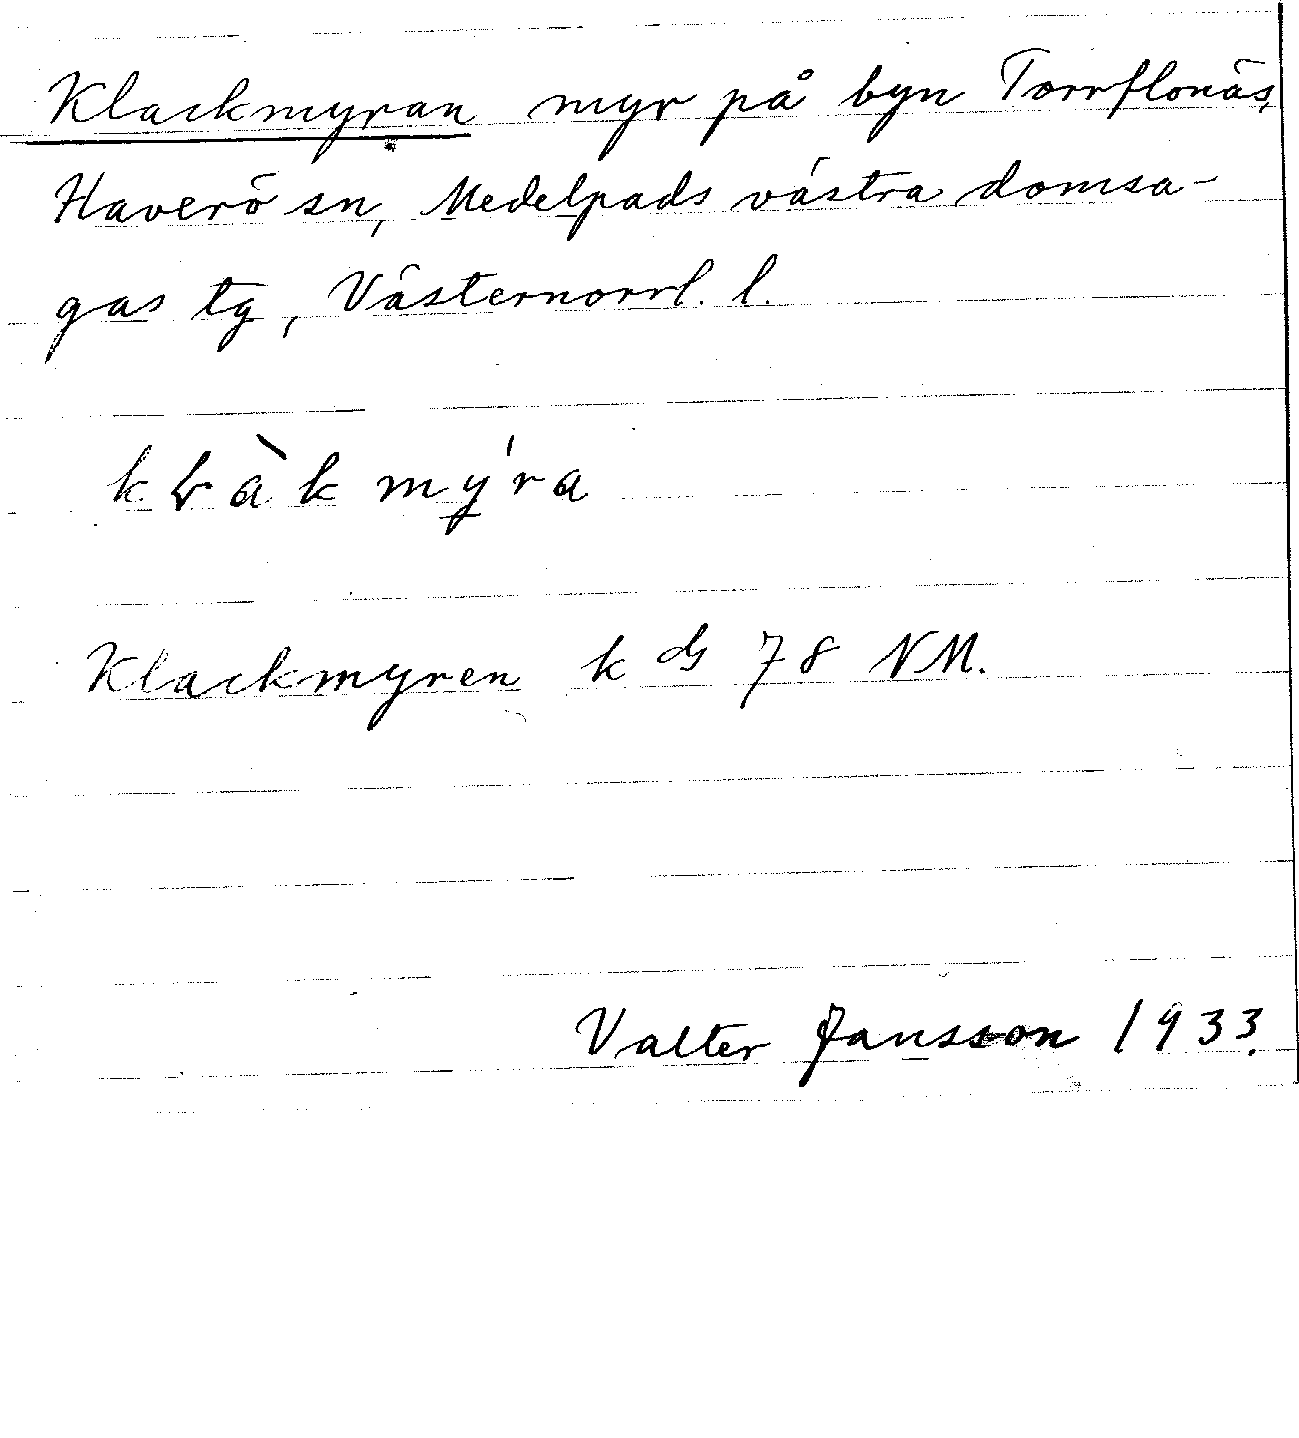 Klackmyran myr på byn Torrflonäs,
Haverö sn, Medelpads västra domsa-
gas tg, Västernorrl. l.
kƚàkmy̱ʹra
Klackmyren k ds 78 NM.
Valter Jansson 1933.